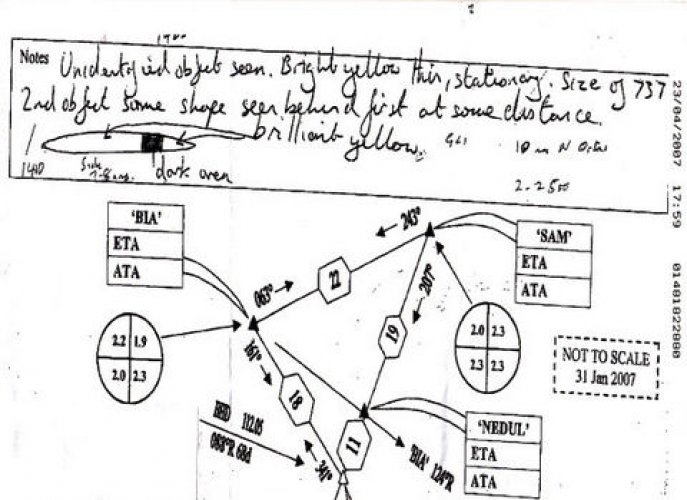 Notes Unidentified object seen. Bright yellow thin, stationary. Size of 737
2nd object same shape seen behind first at some distance.
brilliant yellow.
1410
dark area
23/04/2007 17:59 01481822880
'BIA'
ETA
ATA
'SAM'
ETA
ATA
243°
063°
22
207°
19
2.2 1.9
2.0 2.3
2.0 2.3
2.3 2.3
NOT TO SCALE
31 Jan 2007
161°
18
112.05
088°R 68d
341°
11
'BIA' 124°R
'NEDUL'
ETA
ATA